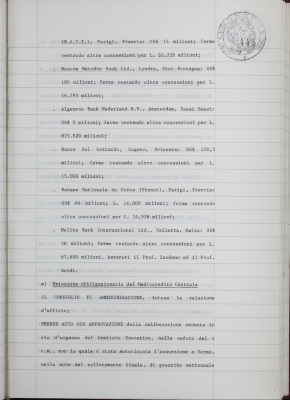 (B.A.I.I.), Parigi, Francia: US$ 15 milioni, ferme
restando altre concessioni per L. 52.728 milioni;
- Moscow Narodny Bank Ltd., Londra, Gran Bretagna: US$
105 milioni; ferme restando altre concessioni per L.
16.393 milioni;
- Algemene Bank Nederland N.V., Amsterdam, Paesi Bassi:
US$ 5 milioni; ferme restando altre concessioni per L.
875.820 milioni;
- Banca del Gottardo, Lugano, Svizzera: US$
milioni; ferme restando altre concessioni per L.
15.060 milioni;
- Banque Nationale de Grèce (France), Parigi, Francia:
US$ 84 milioni; L. 16.000 milioni; ferme restando
altre concessioni per L. 14.938 milioni;
- Melita Bank International Ltd., Valletta, Malta: US$
50 milioni; ferme restando altre concessioni per L.
47.600 milioni. Assenti il Prof. Landano ed il Prof.
Guidi.
e) Emissione obbligazionaria del Mediocredito Centrale
IL CONSIGLIO DI AMMINISTRAZIONE, intesa la relazione
d'ufficio;
PRENDE ATTO CON APPROVAZIONE della deliberazione assunta in
via d'urgenza dal Comitato Esecutivo, nella seduta del
c.m., con la quale è stata autorizzata l'assunzione a fermo,
nelle more del collocamento finale, di prestito settennale